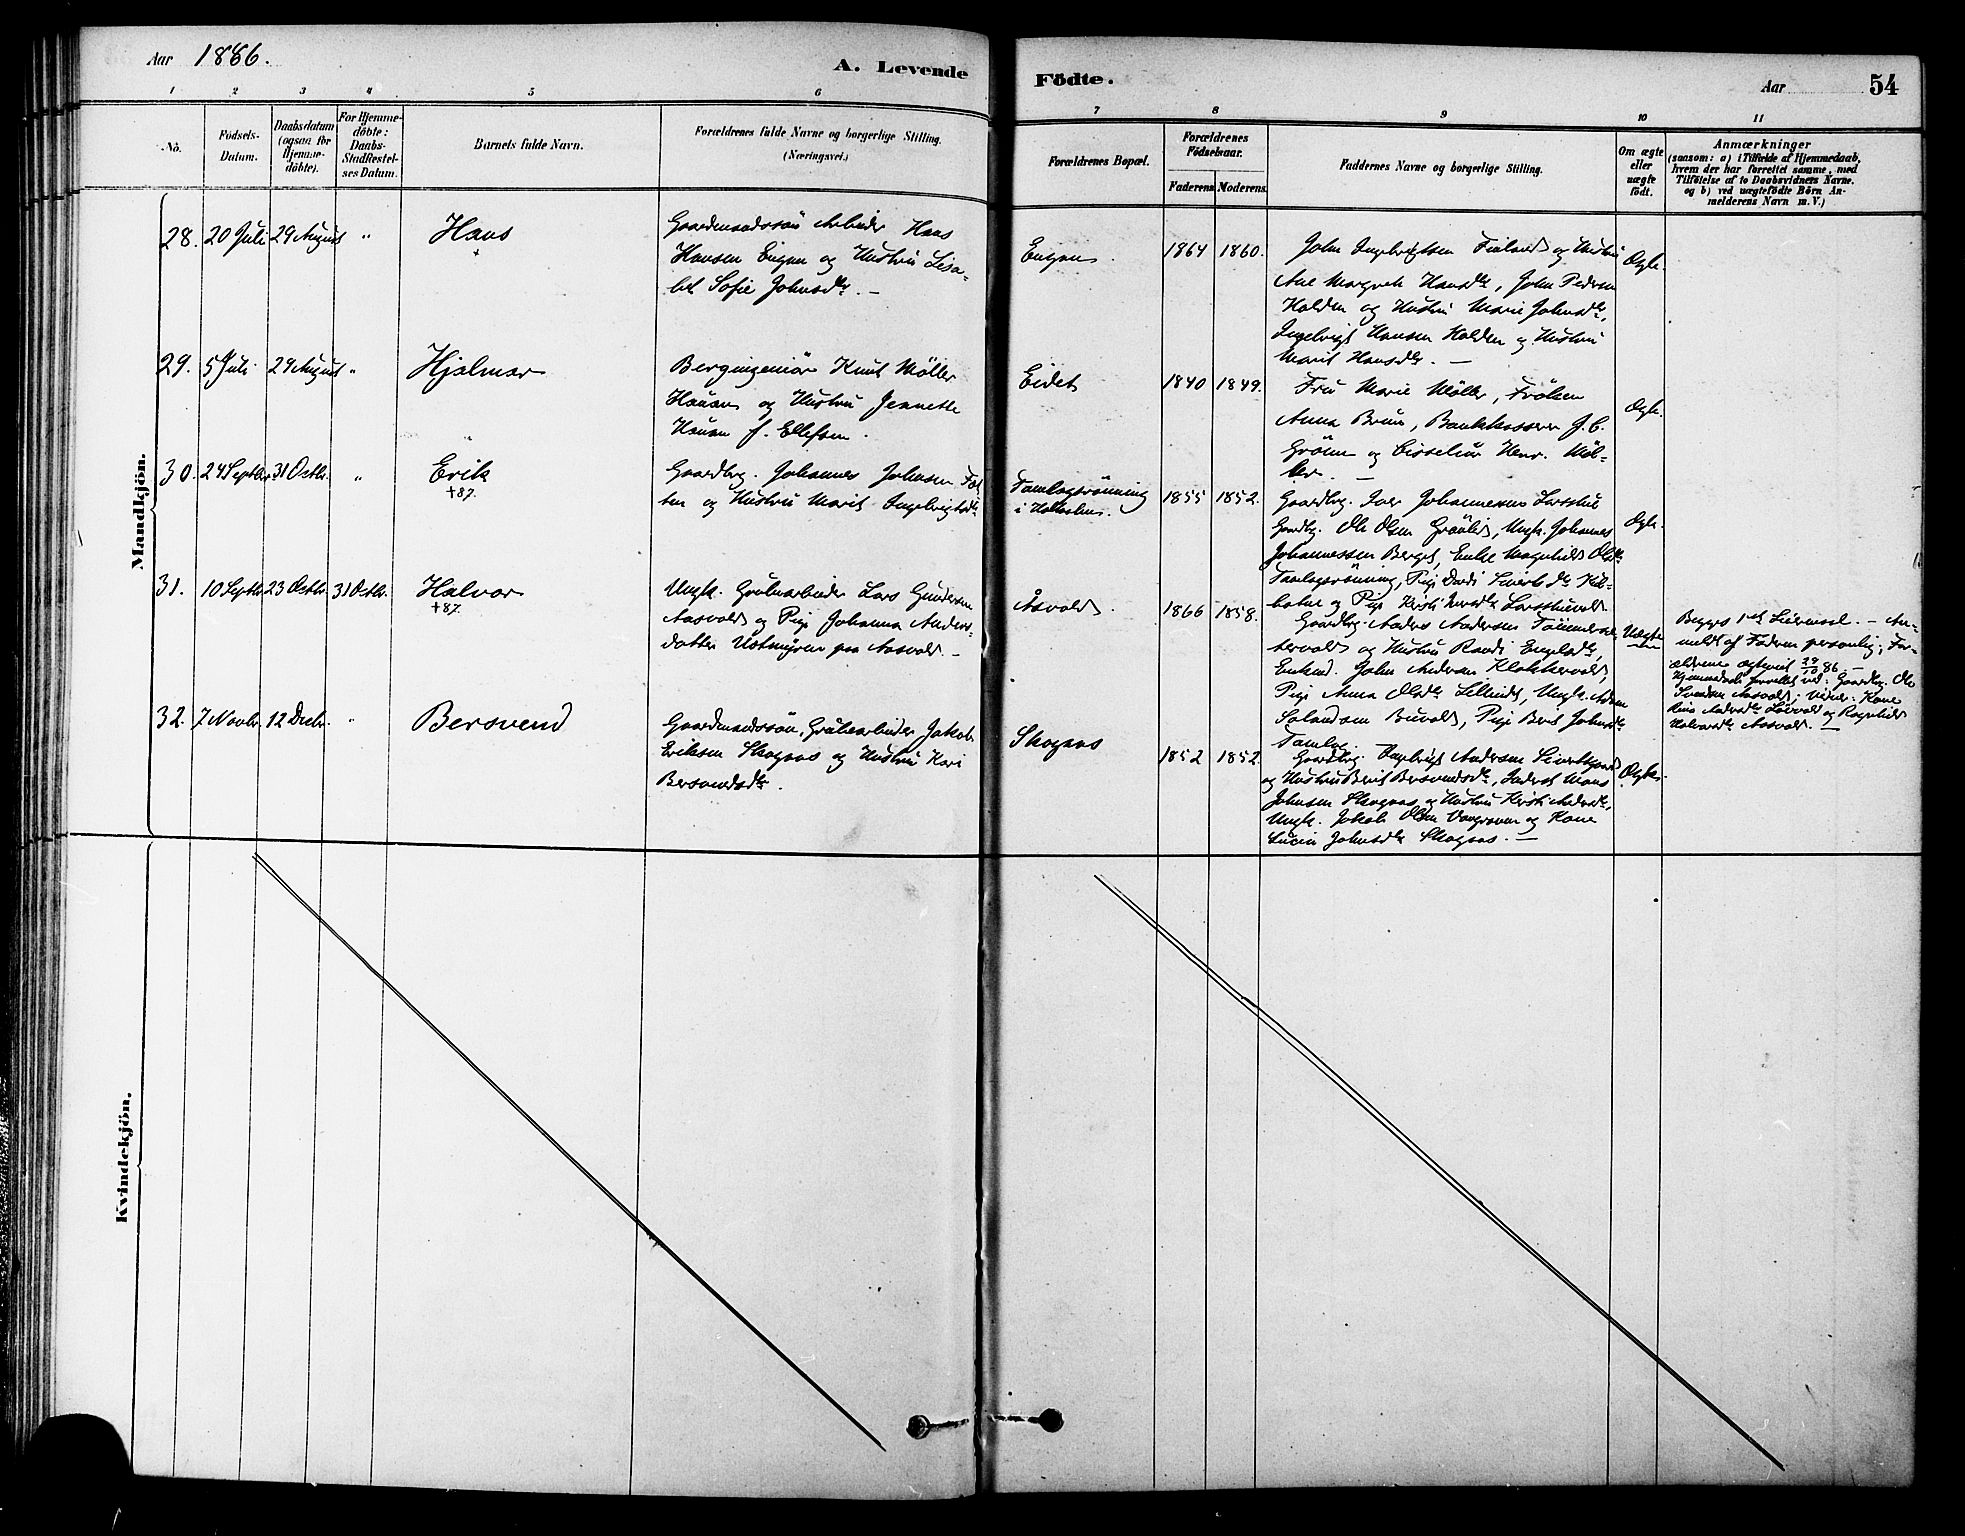 Aar 1886.
A. Levende Födte.
Aar
54
1 2 3 4 5 6 7 8 9 10 11
No.
Födsels-Datum.
Daabsdatum (ogsaa for Hjemme-döbte).
For Hjemme-döbte: Daabs-Stadfæstel-ses Datum.
Barnets fulde Navn.
Forældrenes fulde Navne og borgerlige Stilling.
(Næringsvei.)
Forældrenes Bopæl.
Forældrenes Födselsaar.
Faderens Moderens.
Faddernes Navne og borgerlige Stilling.
Om ægte eller uægte födt.
Anmærkninger
(saasom: a) i Tilfælde af Hjemmedaab,
hvem der har forrettet samme, med
Tilföielse af to Daabsvidners Navne,
og b) ved uægtefödte Börn An-
melderens Navn m. V.)
Mandkjön.
28. 20 Juli 29 August " Hans
Gaardmandssön Arbeider Hans
Hansen Engen og Hustru Lisa-
bet Sofie Johnsdtr. -
Engen. 1864 1860.
John Ingebrigtsen og Hustru
Ane Margrete Hansdtr, John Pedersen
Holden og Hustru Marie Johnsdtr,
Ingebrigt Hansen Holden og Hustru
Marit Hansdtr. -
Ægte.
29. 5 Juli 29 August " Hjalmar
Bergingeniör Knut Möller
Hauan og Hustru Jennette
Hauan f. Ellefsen.
Eidet 1840 1849.
Fru Marie Möller, Fröken
Anna Bruun, Bankkasserer J. C.
Grönn og Henr. Möl-
ler. -
Ægte.
30. 24 Septbr. 31 Octbr. " Erik
+87.
Gaardbrg. Johannes Johnsen
og Hustru Marit Ingebrigtsdtr
Tamlagsrönning
i
1855 1852.
Gaardbrg. Iver Johannesen Larshus
Gaardbrg. Ole Olsen Grönli, Ungk. Johannes
Johannessen Berget, Enke Magnhild Olsdtr
Tamlagsrönning, Pige Dordi Sivertsdtr
og Pige Kirsti Iversdtr
Ægte.
31. 10 Septbr. 23 Octbr. 31 Octbr. Halvor
+87.
Ungk. Grubearbeider Lars Gundersen
Aasvold og Pige Johanna Anders-
datter Ustmyren paa Aasvold. -
Åsvold. 1866 1858.
Gaardbrg. Anders Andersen
og Hustru Randi
Enkemd. John Andersen Klokkervold,
Pige Anna Olsdtr Ungk. Anders
Pige Berit Johnsdtr
Tamlag.
Uægte
Begges 1ste Leiermaal. - An-
meldt af Faderen personlig; For-
ældrene ægteviet 29/10 86. -
Hjemmedaab forrettet ved: Gaardbrg. Ole
Svendsen Aasvold; Vidner: Kone
og Ragnhild
Halvorsdtr Aasvold. -
32. 7 Novbr. 12 Decbr. " Bersvend
Gaardmandssön, Grubearbeider Jakob
Eriksen Skogaas og Hustru Kari
Bersvendsdtr.
Skogaas 1852 1852.
Gaardbrg. Ingebrigt Andersen
og Hustru Berit Bersvendsdtr, Inderst Mons
Johnsen Skogaas og Hustru Kirsti Andersdtr,
Ungk. Jakob Olsen og Kone
Johnsdtr Skogaas. -
Ægte.
Kvindekjön.